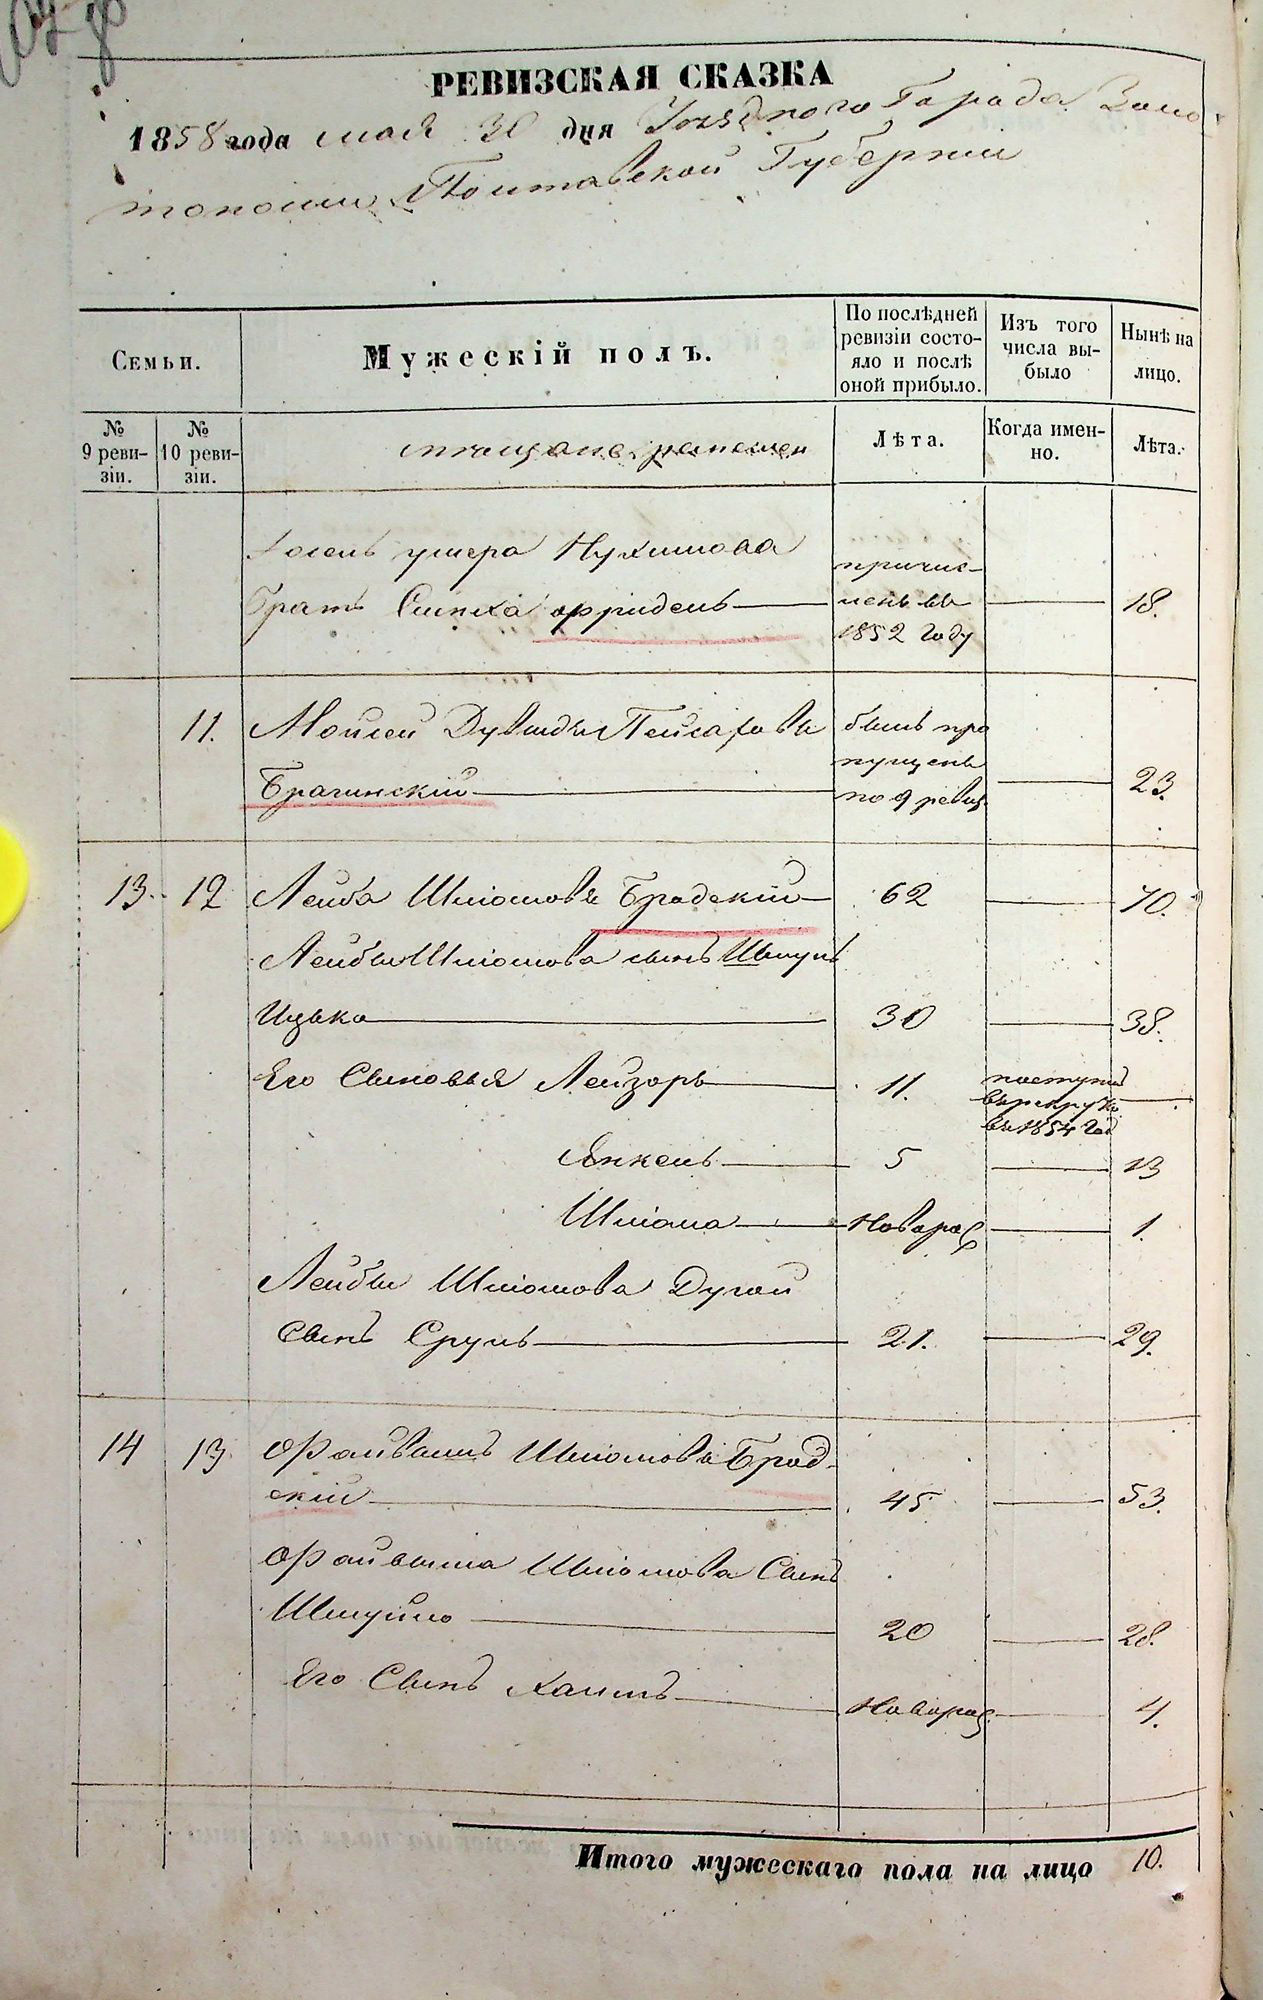 РЕВИЗСКАЯ СКАЗКА
1858 года мая 30 дня Уѣзднаго Города Золо-
тоноши Полтавской Губернiи
Семьи.
Мужескiй полъ.
По послѣдней ревизiи состо-
яло и послѣ
оной прибыло.
Изъ того
числа вы-
было
Нынѣ на
лицо.
№
9 реви-
зiи.
№
10 реви-
зiи.
мѣщане
Лѣта.
Когда имен-
но.
Лѣта.
Умера Нухимова
Братъ Симха Фридель
причис-
ленъ въ
1852 году
18.
11.
Мойсей Дувидъ Пейсахова
Брагинскiй
былъ про
пущенъ
по 9 ревиз
23.
13. 12
Лейба Шлiомовъ Бродскiй
62
70.
Лейбы Шлiомова сынъ Шмуль
Ицько
30
38.
Его Сыновья Лейзоръ
11.
поступилъ
въ рекруты
въ 1854 год
Янкель
5
13
Шлiома
Новорож
1.
Лейбы Шлiомова Другой
Сынъ Сруль
21.
29.
14 13
Файвишъ Шлiомовъ Брод-
скiй
45
53.
Файвиша Шлiомова Сынъ
Шмуйло
20
28.
Его Сынъ Хаимъ
Новорож.
4.
Итого мужескаго пола на лицо 10.